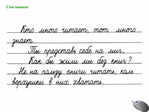 Списывание
Кто много читает, тот много
знает.
Ты представь себе на миг,
Как бы жили мы без книг?
Не на палку книги читать, коль
верхушки в них хватать.